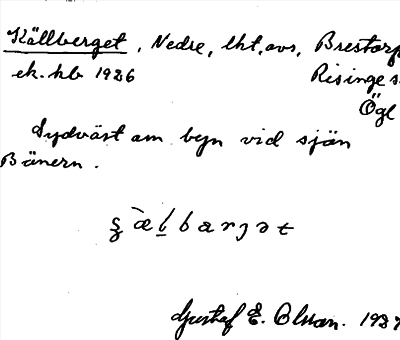 Källberget, Nedre, lht, avs, Brestorp
ek. kb 1926 Risinge s
Ögl
Sydväst om byn vid sjön
Bönern.
Gustaf E. Olsson.